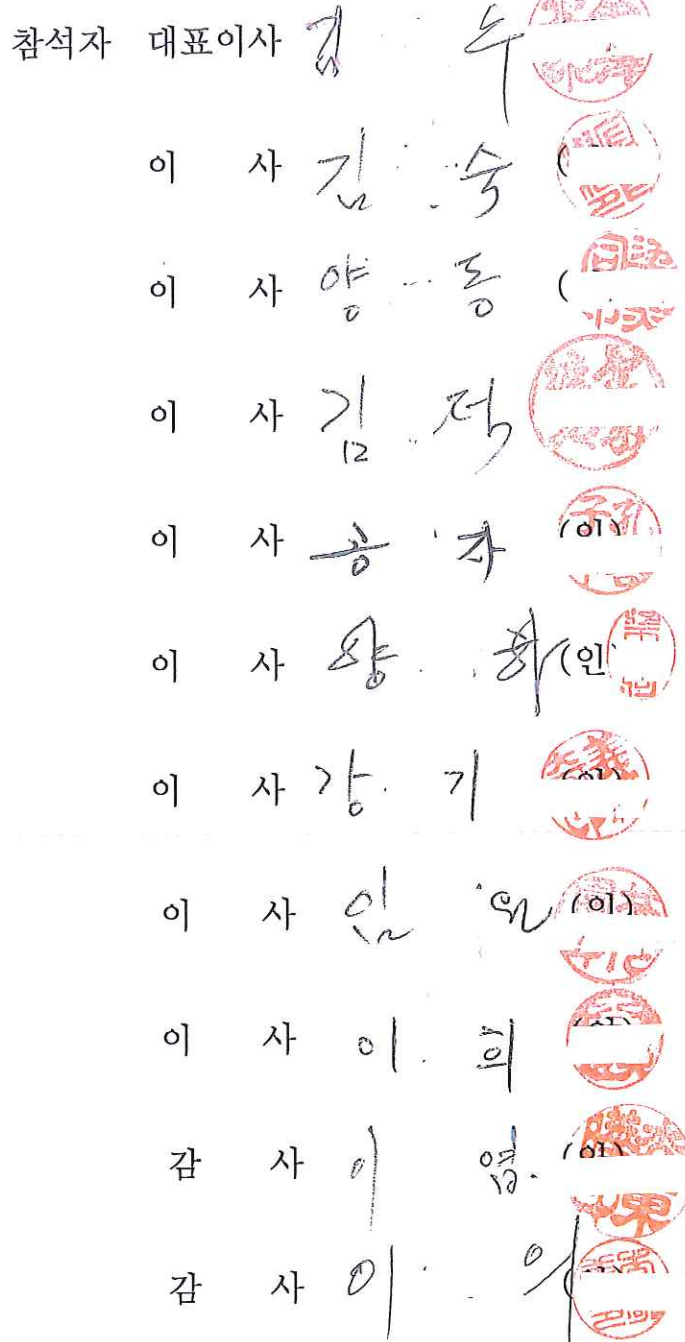 참석자 대표이사 김 수
이 사 김 숙 (
이 사 양 동 (
이 사 김 덕
이 사 공 자 (인)
이 사 양 화 (인
이 사 강 기 (인)
이 사 임 원 (인)
이 사 이 희 (인)
감 사 이 엽 (인)
감 사 이